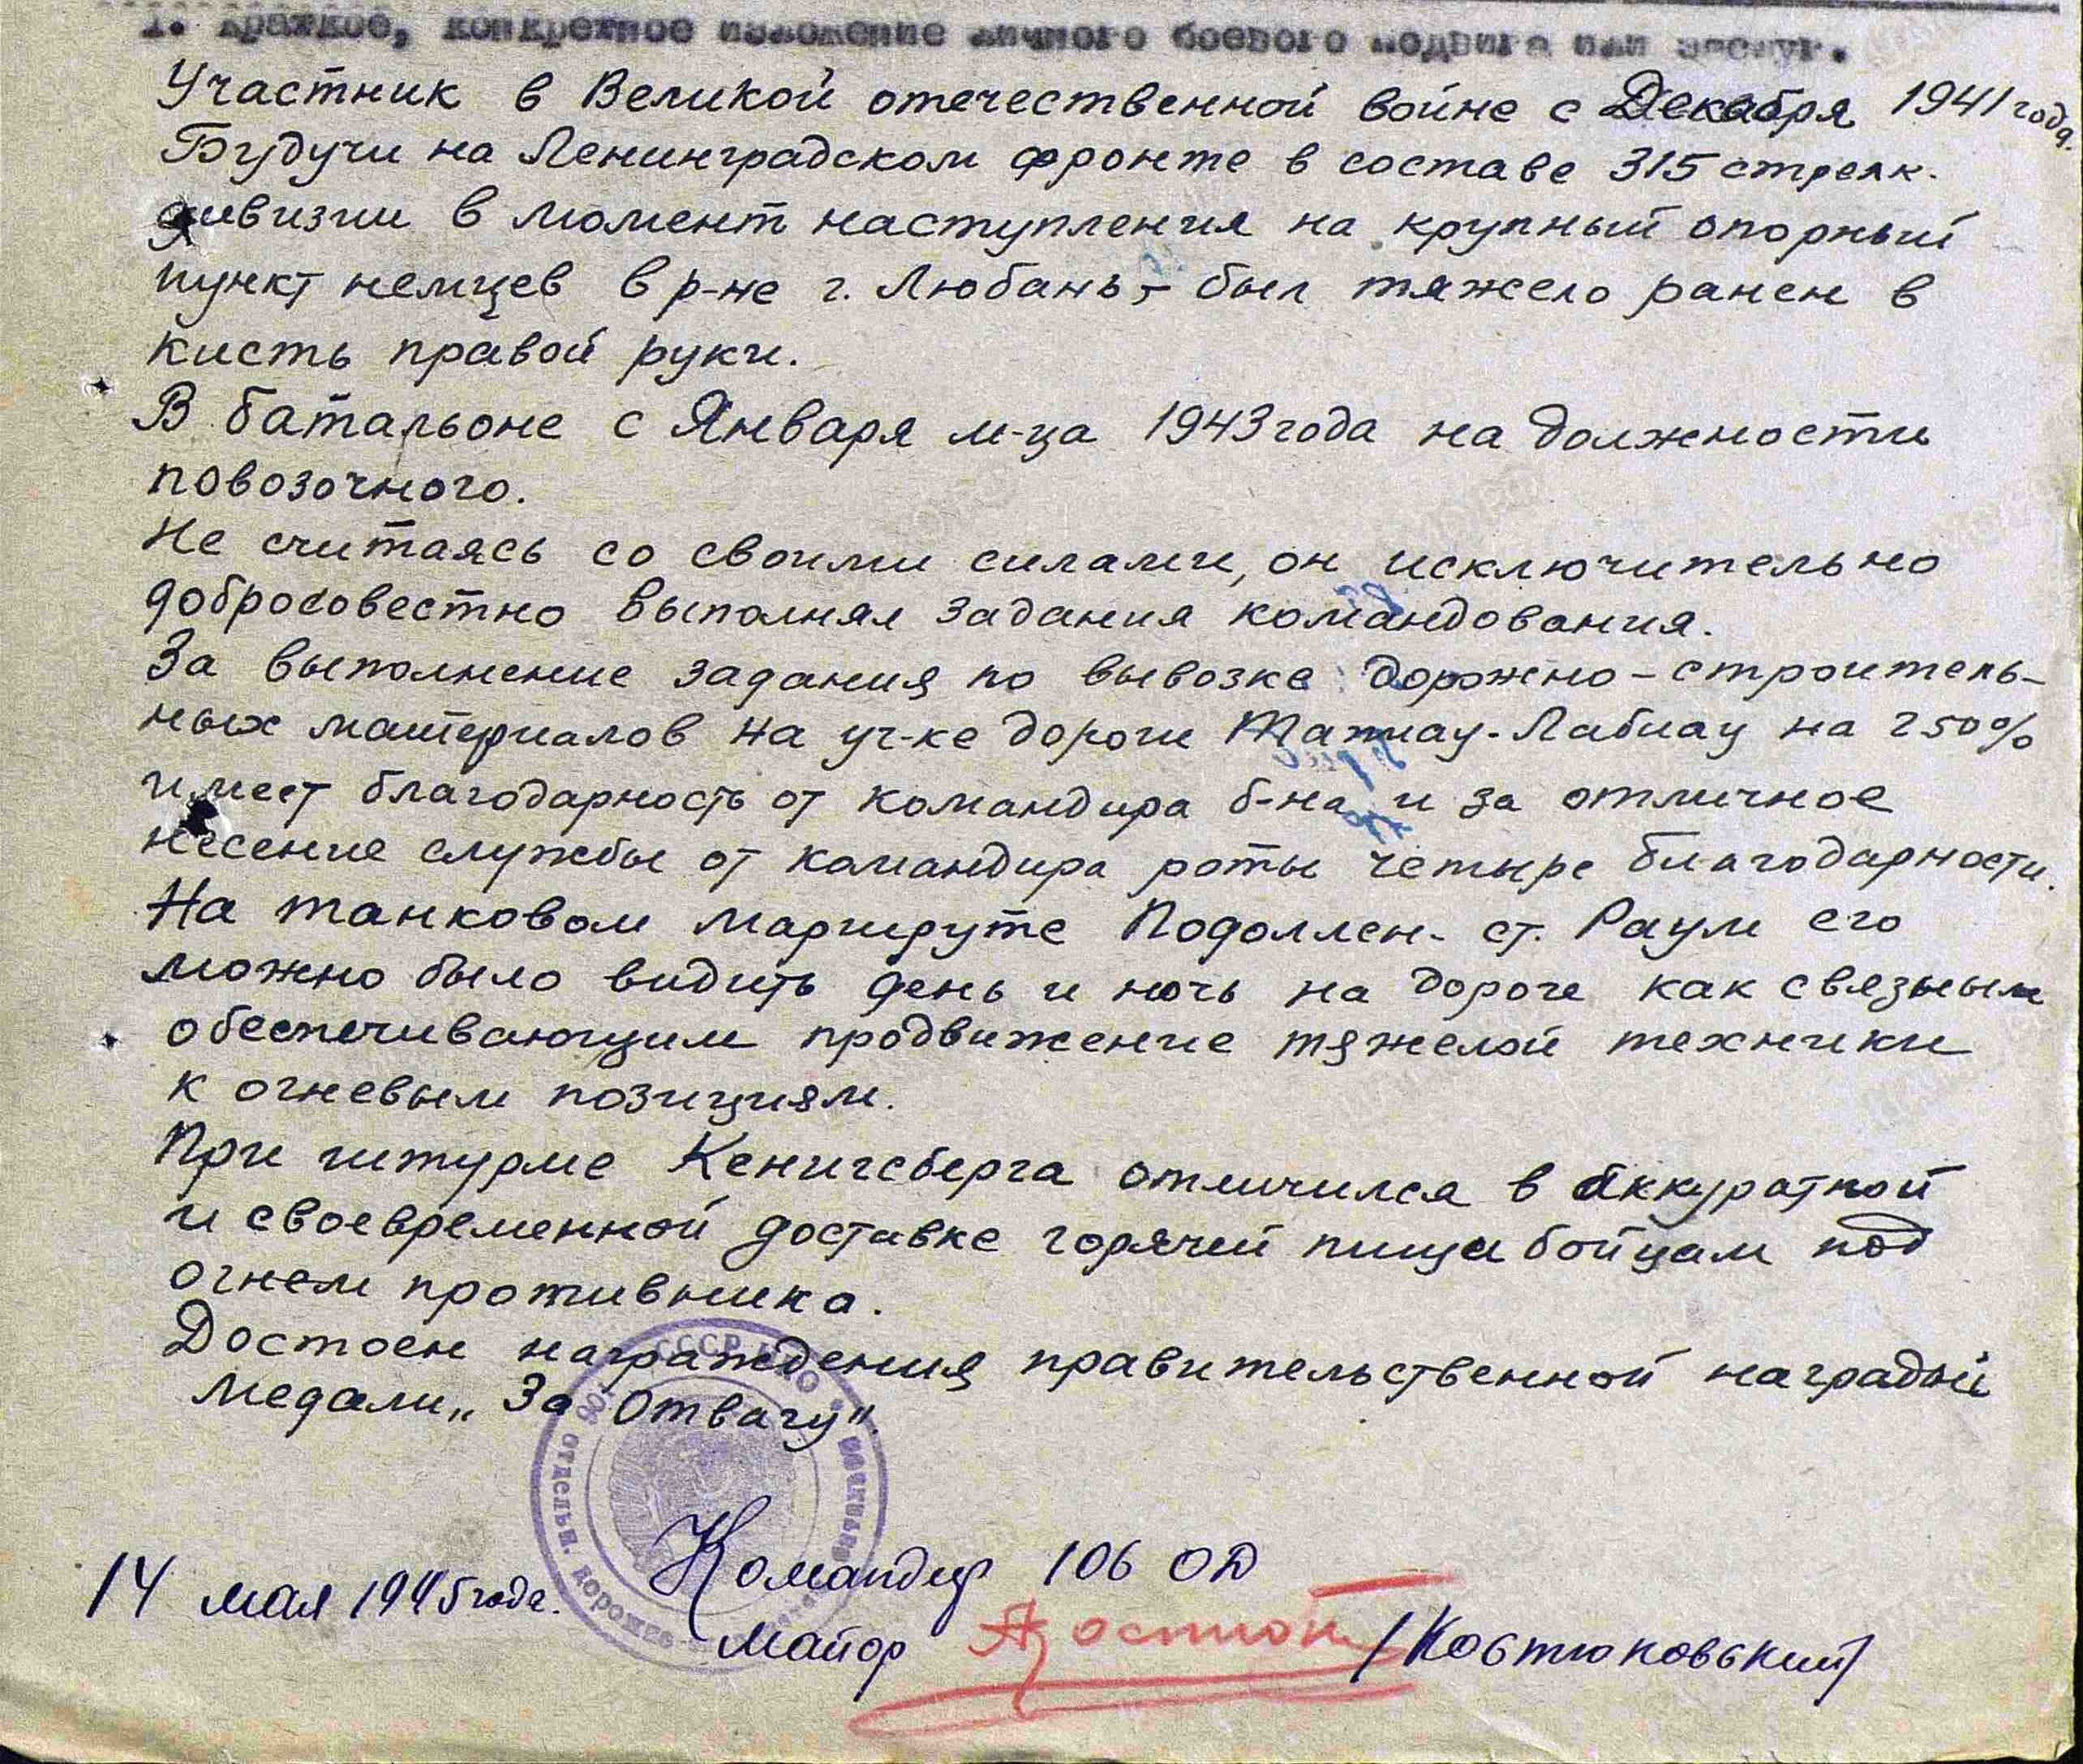 1. Краткое, конкретное изложение личного боевого подвига или заслуг.
Участник в Великой отечественной войне с Декабря 1941 года.
Будучи на Ленинградском фронте в составе 315 стрелк.
дивизии в момент наступления на крупный опорный
пункт немцев в р-не г. Любань, - был тяжело ранен в
кисть правой руки.
В батальоне с Января м-ца 1943 года на должности
повозочного.
Не считаясь со своими силами, он исключительно
добросовестно выполнял задания командования.
За выполнение задания по вывозке дорожно-строитель-
ных материалов на уч-ке дороги Тапиау-Лабиау на 250%
имеет благодарность от командира б-на и за отличное
несение службы от командира роты четыре благодарности.
На танковом маршруте Подоллен - ст. Раум его
можно было видить день и ночь на дороге как связным
обеспечивающим продвижение тяжелой техники
к огневым позициям.
При штурме Кенигсберга отличился в аккуратной
и своевременной доставке горячей пищи бойцам под
огнем противника.
Достоен награждения правительственной наградой
медали „За Отвагу".
СССР НКО
106 отдельн. дорожно
Командир 106 ОД
14 мая 1945 года.
майор /Костюковский/